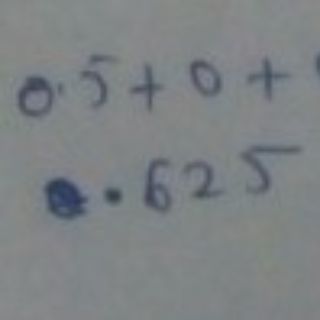 0.5+0+
0.625